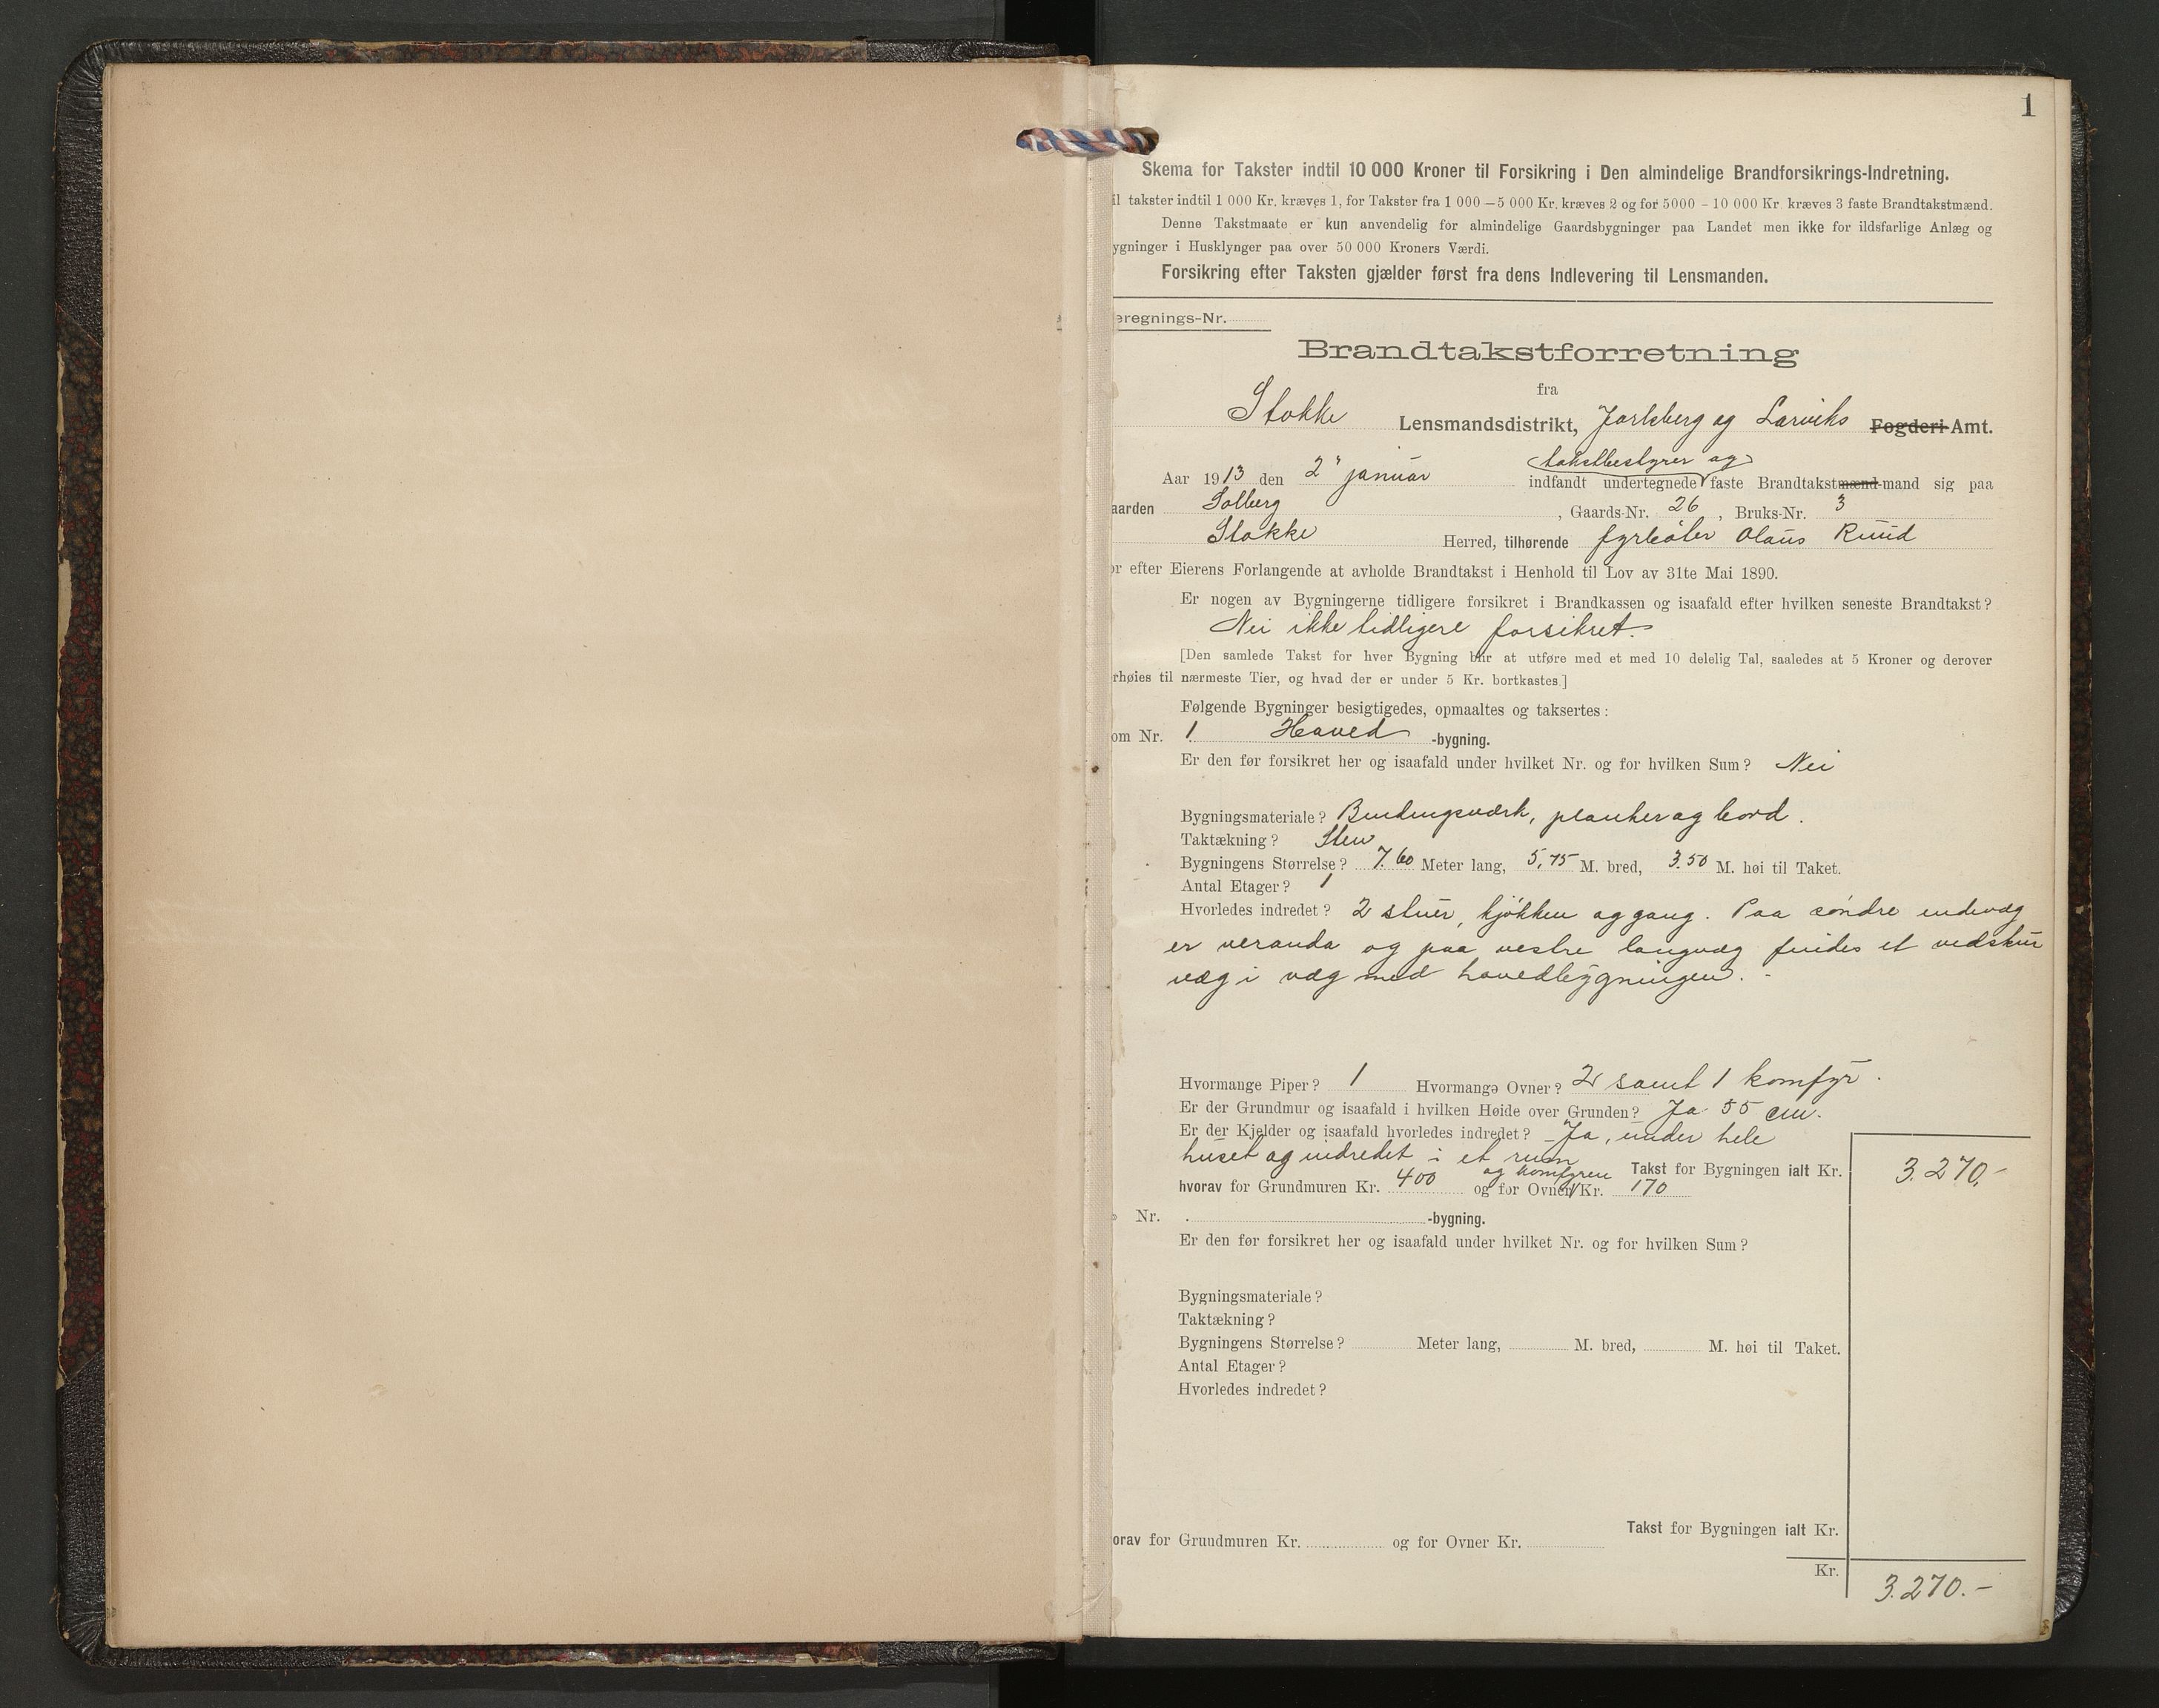 1
Skema for Takster indtil 10 000 Kroner til Forsikring i Den almindelige Brandforsikrings-Indretning.
il takster indtil 1 000 Kr. kræves 1, for Takster fra 1 000 — 5 000 Kr. kræves 2 og for 5000 - 10 000 Kr. kræves 3 faste Brandtakstmænd.
Denne Takstmaate er kun anvendelig for almindelige Gaardsbygninger paa Landet men ikke for ildsfarlige Anlæg og
ygninger i Husklynger paa over 50 000 Kroners Værdi.
Forsikring efter Taksten gjælder først fra dens Indlevering til Lensmanden.
eregnings-Nr.
Brandtakstforretning
fra
Stokke Lensmandsdistrikt, Jarlsberg og Larviks Fogderi Amt.
takstbestyrer og
Aar 1913 den 2' januar indfandt undertegnede faste Brandtakstmænd mand sig paa
aarden Solberg, Gaards-Nr. 26, Bruks-Nr. 3
Stokke Herred, tilhørende fyrbøter Olaus Ruud
or efter Eierens Forlangende at avholde Brandtakst i Henhold til Lov av 31te Mai 1890.
Er nogen av Bygningerne tidligere forsikret i Brandkassen og isaafald efter hvilken seneste Brandtakst?
Nei ikke tidligere forsikret.
[Den samlede Takst for hver Bygning blir at utføre med et med 10 delelig Tal, saaledes at 5 Kroner og derover
rhøies til nærmeste Tier, og hvad der er under 5 Kr. bortkastes]
Følgende Bygninger besigtigedes, opmaaltes og taksertes:
om Nr. 1. Hoved -bygning.
Er den før forsikret her og isaafald under hvilket Nr. og for hvilken Sum? Nei
Bygningsmateriale? Bindingsværk, planker og bord.
Taktækning? Sten
Bygningens Størrelse? 7.60 Meter lang, 5,75 M. bred, 3.50 M. høi til Taket.
Antal Etager? 1
Hvorledes indredet? 2 stuer, kjøkken og gang. Paa søndre endevæg
er veranda og paa vestre langvæg findes et vedskur
væg i væg med hovedbygningen. -
Hvormange Piper? 1 Hvormange Ovner? 2 samt 1 komfyr.
Er der Grundmur og isaafald i hvilken Høide over Grunden? Ja 55 cm.
Er der Kjelder og isaafald hvorledes indredet? Ja, under hele
huset og indredet i et rum
og komfyren Takst for Bygningen ialt Kr. 3.270,-
hvorav for Grundmuren Kr. 400 og for Ovner Kr. 170
Nr. -bygning.
Er den før forsikret her og isaafald under hvilket Nr. og for hvilken Sum?
Bygningsmateriale?
Taktækning?
Bygningens Størrelse? Meter lang, M. bred, M. høi til Taket.
Antal Etager?
Hvorledes indredet?
Takst for Bygningen ialt Kr.
orav for Grundmuren Kr. og for Ovner Kr.
Kr. 3.270.-